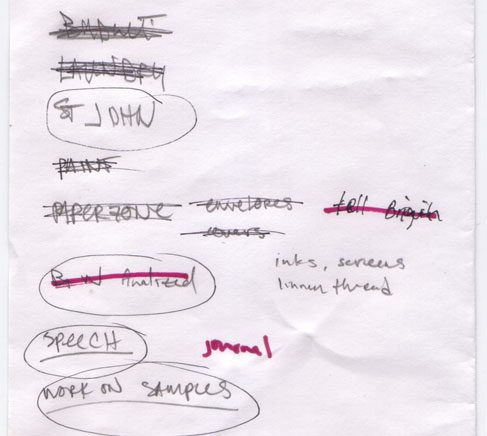 LAUNDRY
ST JOHN
PAINT
PAPERZONE envelopes tell Brigitn
covers
inks, screens
linnen thread
B+W Analized
SPEECH journal
WORK ON SAMPLES